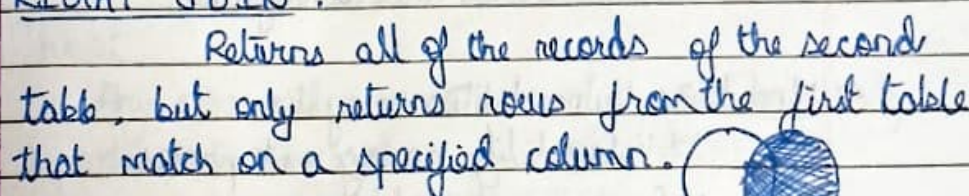 RIGHT JOIN :
Returns all of the records of the second
table, but only returns rows from the first table
that match on a specified column.